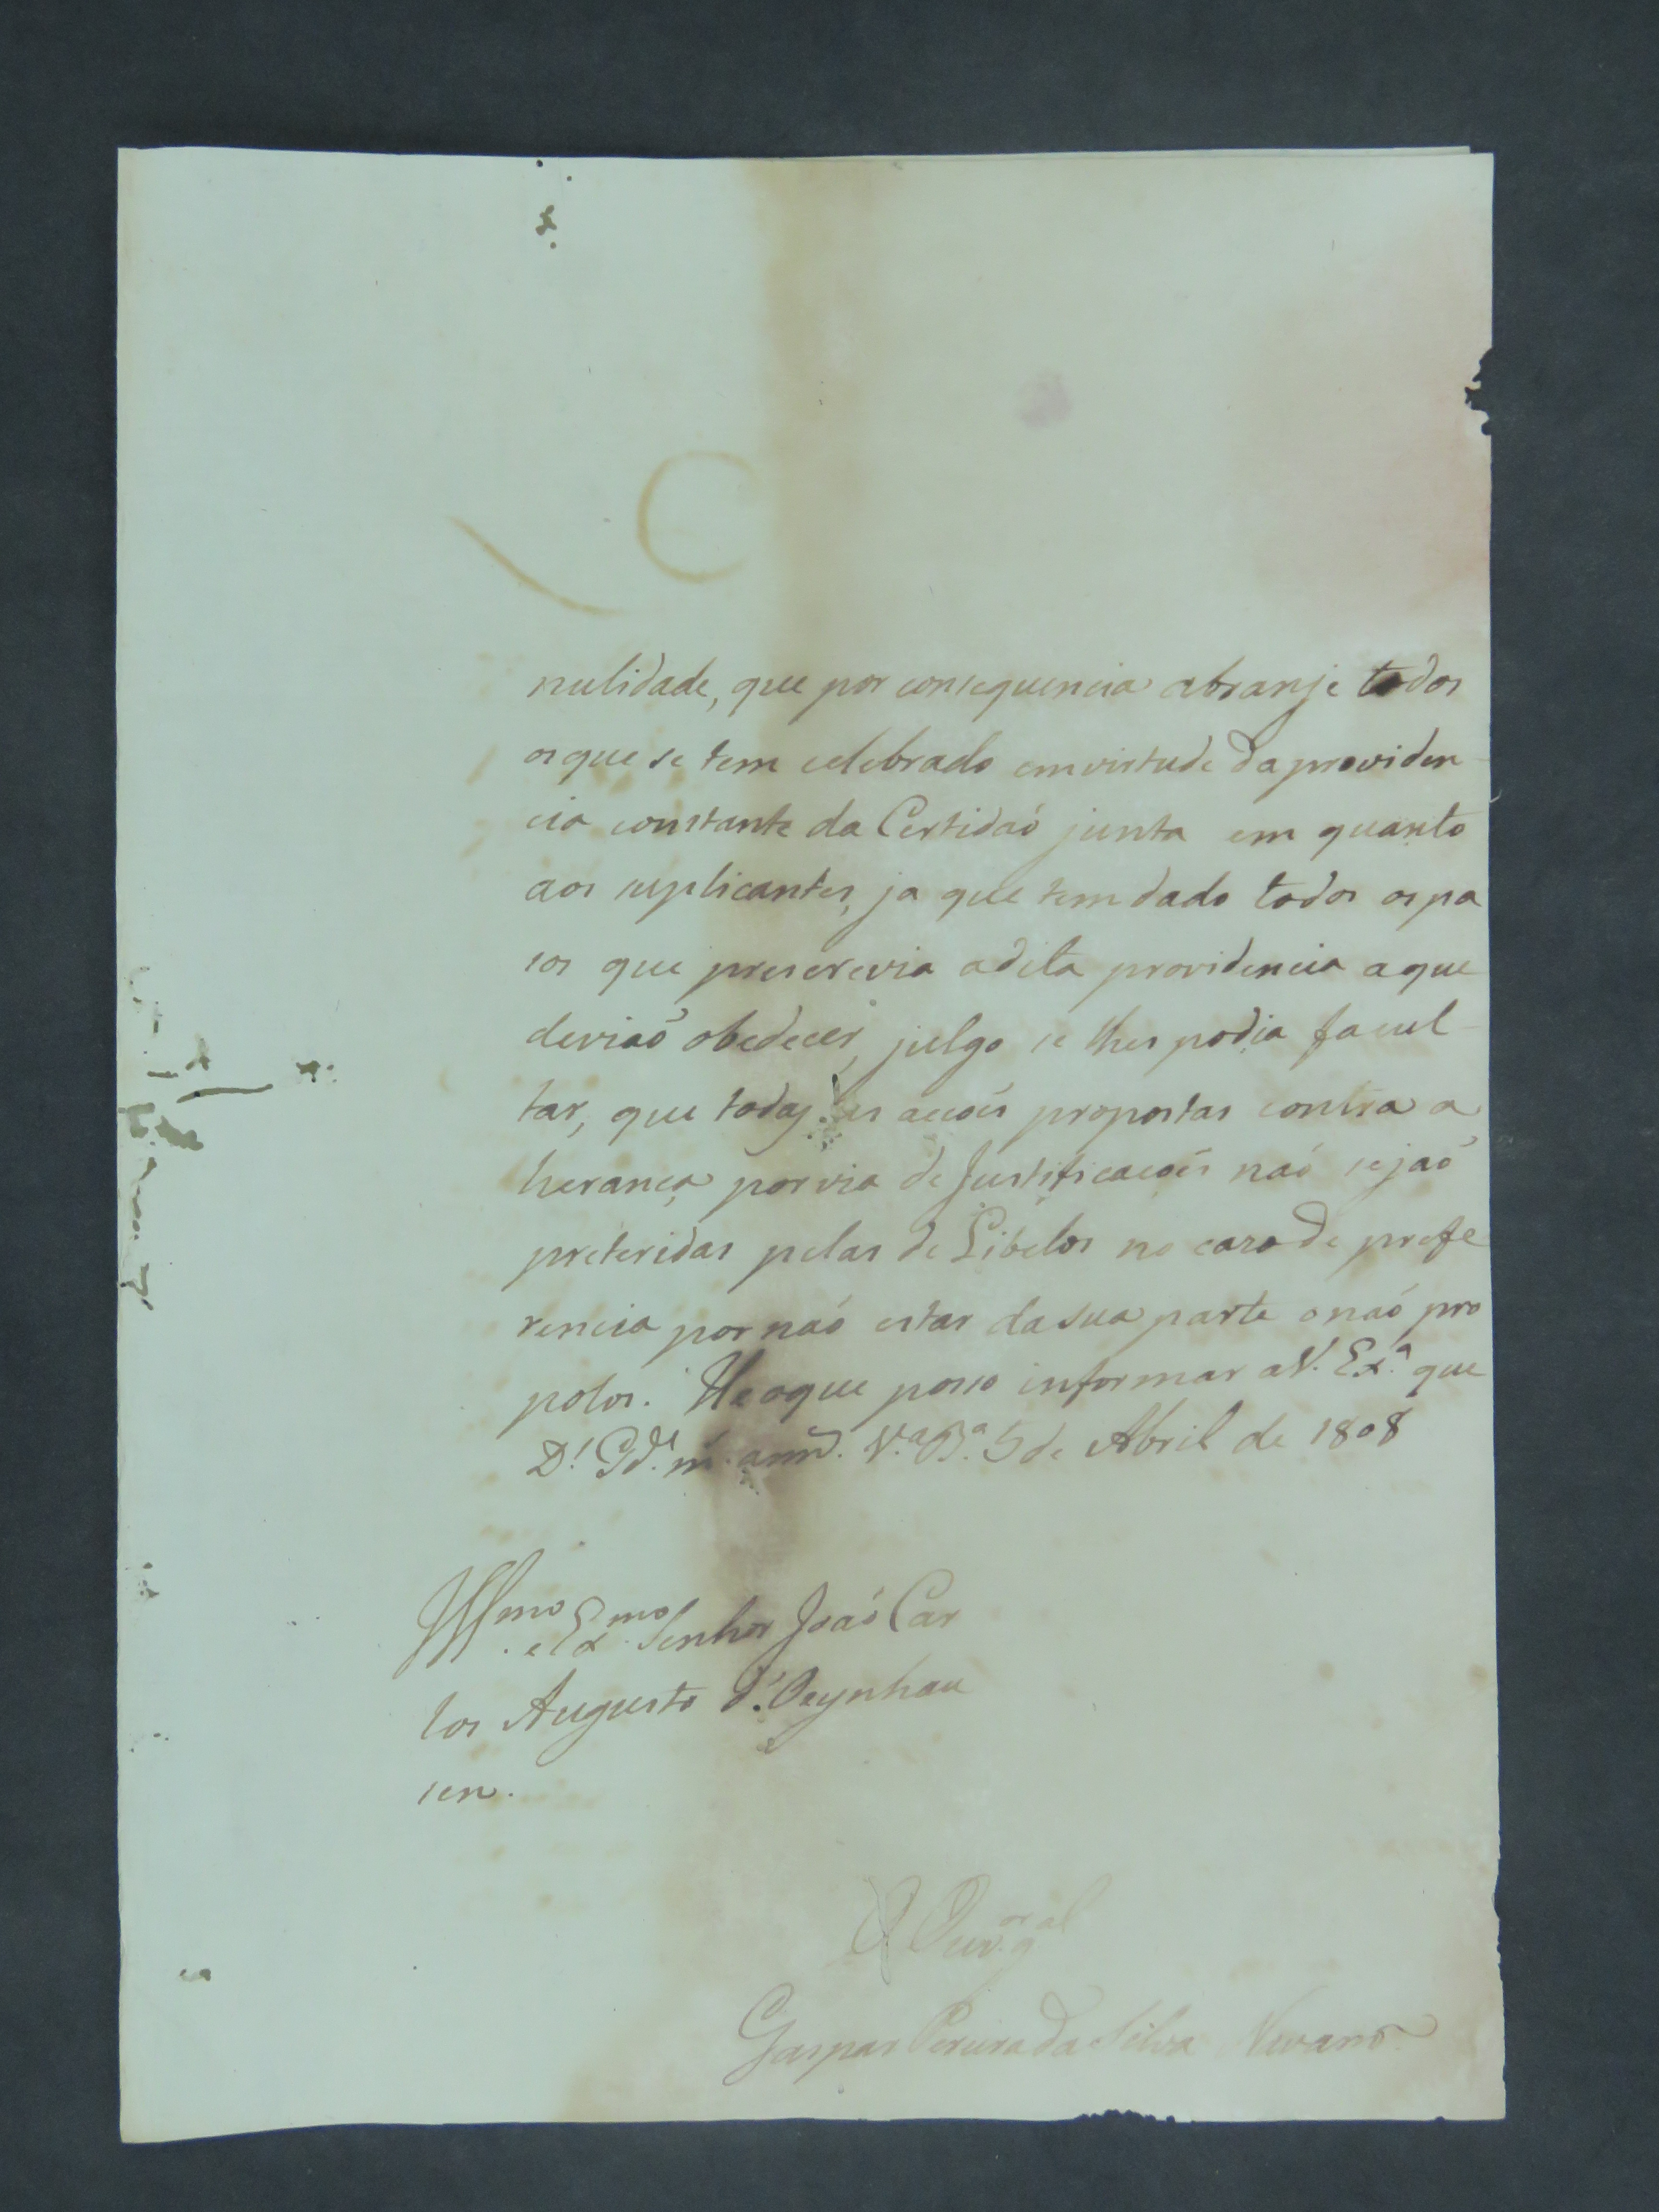 nulidade, que por consequencia abranje todos
os que se tem celebrado em virtude da providen
cia constante da Certidaõ junta em quanto
aos suplicantes, ja que tem dado todos os pa
sos que prescrevia a dita providencia a que
deviaõ obedecer, julgo se lhes podia facul
tar, que todas as accoẽs propostas contra a
herança por via de Justificacoẽs naõ sejaõ
preteridas pelas de Libelos no cazo de prefe
rencia por naõ estar da sua parte o naõ pro
polos. He o que posso informar a V. Ex.ª que
D.s G.de m.s ann.s V.ª B.ª 5 de Abril de 1808
Ill.mo e Ex.mo Senhor Joaõ Car
los Augusto d'Oeynhau
sen.
O Ouv.or g.al
Gaspar Pereira da Silva Navarro